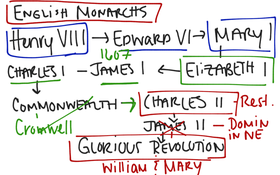 ENGLISH MONARCHS
Henry VIII → EDWARD VI → MARY I
1607
CHARLES I — JAMES I ← ELIZABETH I
COMMONWEALTH → CHARLES II - Rest.
Cromwell
JAMES II - DOMIN IN NE
GLORIOUS REVOLUTION
William & MARY